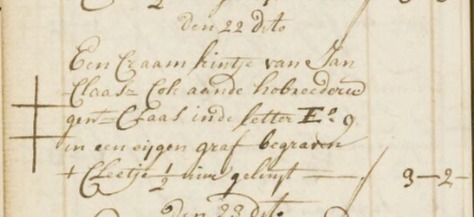 den 22 dito
Een Craam kintje van Jan
Claas= Cok aande
gent= Claas inde letter E:o 9
in een eijgen graf begraven
+ Cleetje ½ uur geluijt — 3-2-
den 23 dito